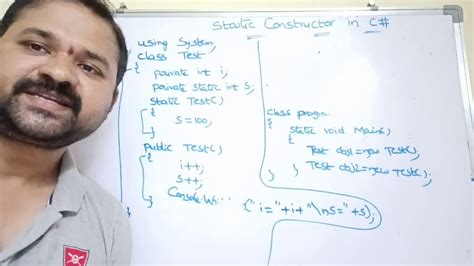 Static Constructor in C#
using System;
class Test
{
private int i;
private static int s;
static Test()
{
s=100;
}
public Test()
{
i++;
s++;
Console.W
("i="+i+"\ns="+s);
}
class progra
{
static void Main()
{
Test obj1=new Test();
Test obj2=new Test();
}
}